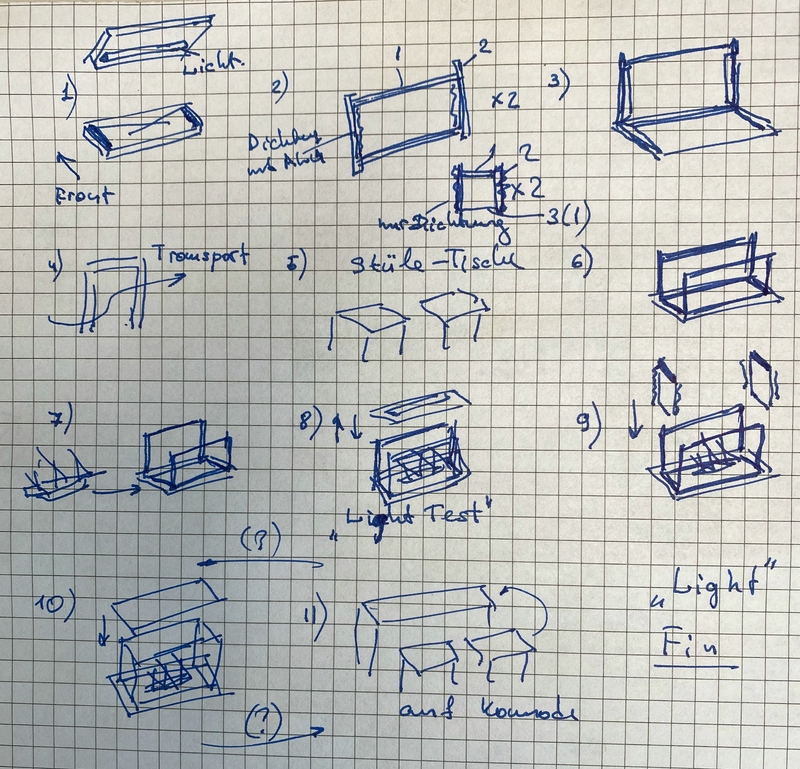 Licht.
1)
Front
2)
1
2
x2
Dichtung
mit Alu
1
2
x2
nur Dichtung
3(1)
3)
4)
Transport
5)
Stüle-Tische
6)
7)
8)
"Light Test"
9)
(?)
10)
(?)
11)
auf Komode
"Light"
Fin